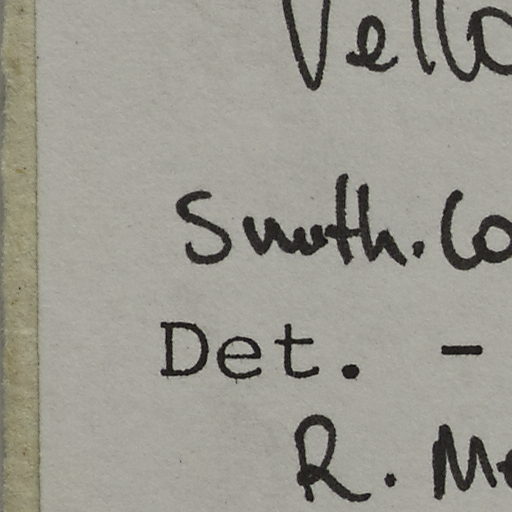 Vello
Smith. Co
Det. -
R. Me